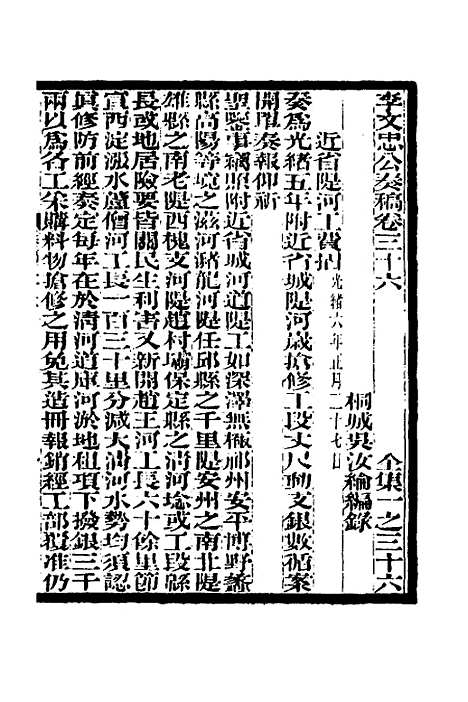 李文忠公奏稿卷三十六 全集一之三十六
桐城吳汝綸編錄
近省隄河工費摺 光緒六年正月二十七日
奏爲光緒五年附近省城隄河歲搶修工段丈尺動支銀數循案
開單奏報仰祈
聖鑒事竊照附近省城河道隄工如深澤無極祁州安平博野蠡
縣高陽等境之滋河豬龍河隄任邱縣之千里隄安州之南北隄
雄縣之南老隄西槐支河隄趙村壩保定縣之淸河埝或工段緜
長或地居險要皆關民生利害又新開趙王河工長六十餘里節
宣西淀漲水蘆僧河工長一百三十里分減大淸河水勢均須認
眞修防前經奏定每年在於淸河道庫河淤地租項下撥銀三千
兩以爲各工朱購料物搶修之用免其造冊報銷經工部覆准仍